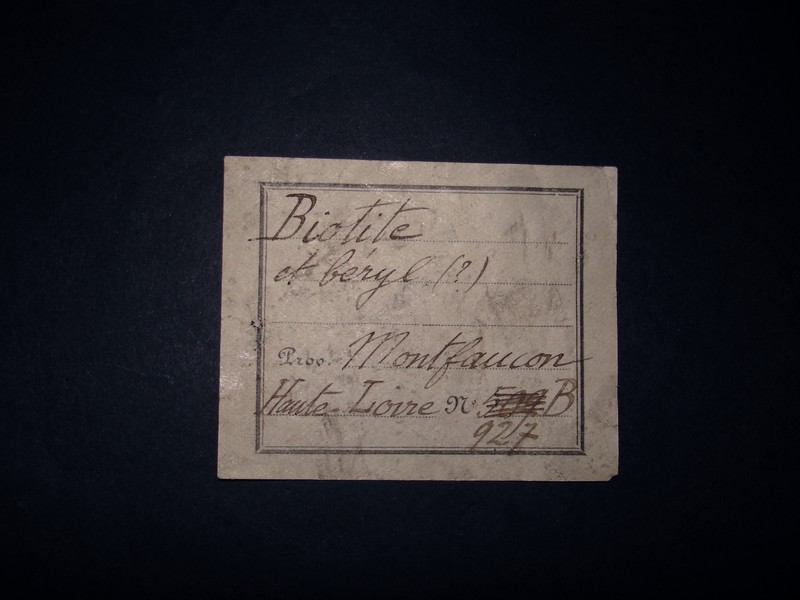 Biotite
et béryl (?)
Prov. Montfaucon
Haute-Loire No B
927